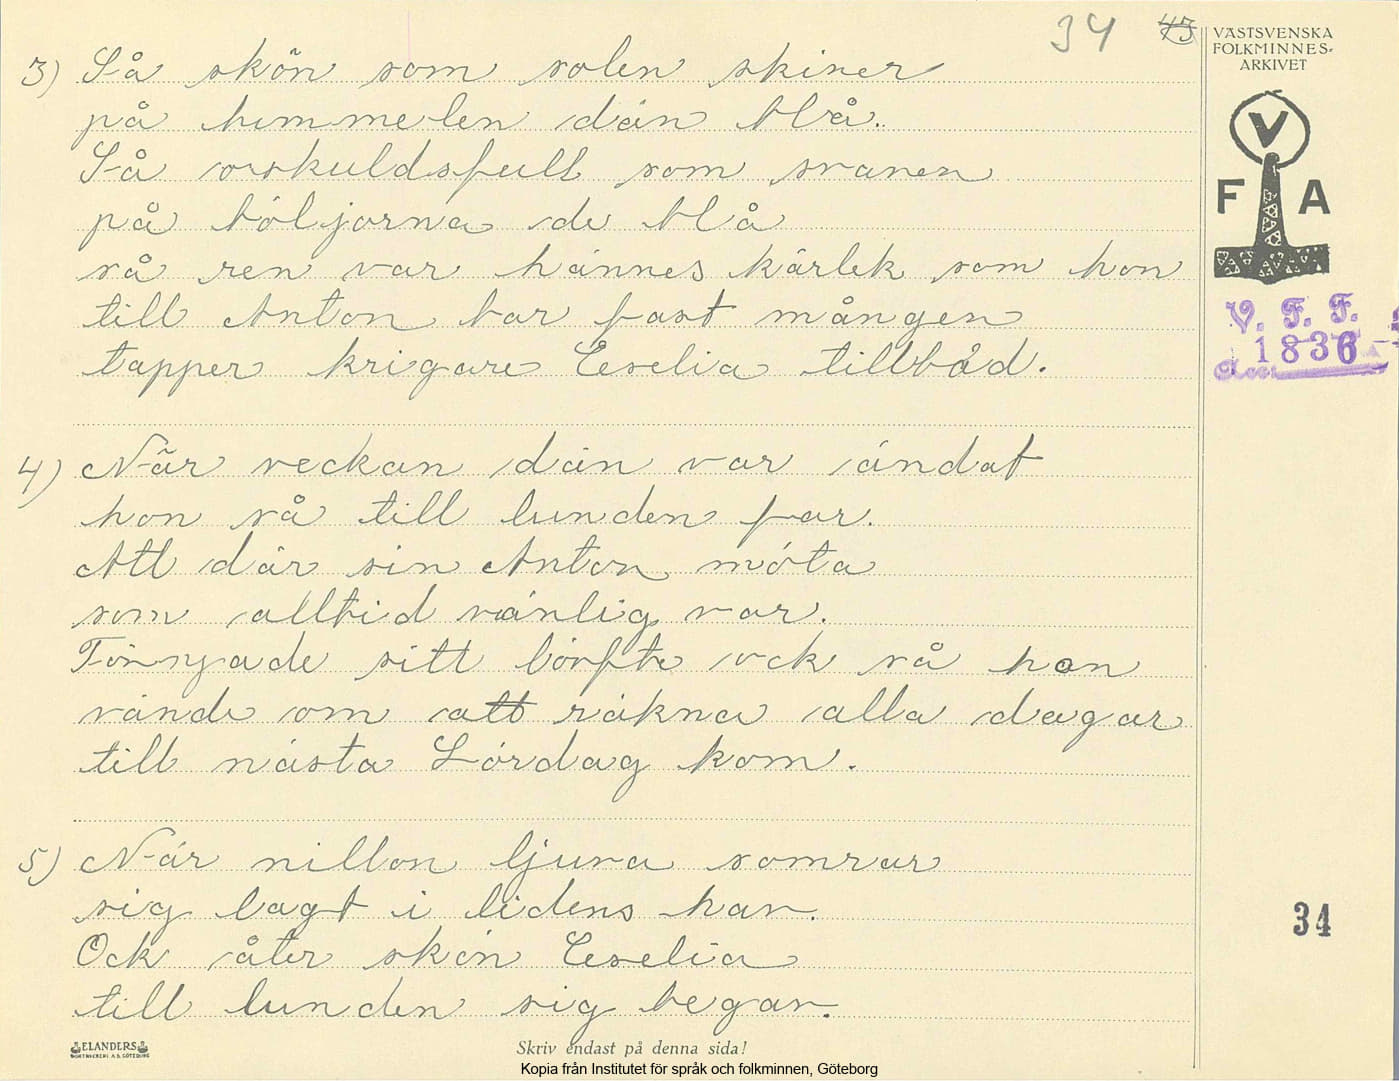 34 43
VÄSTSVENSKA
FOLKMINNES-
ARKIVET
V
F A
V. F. F.
1836
3) Så skön som solen skiner
på himmelen dän blå.
Så oskuldsfull som svanen
på böljorna de blå
så ren var hännes kärlek som hon
till Anton bar fast mången
tapper krigare Ceselia tillbåd.
4) När veckan dän var ändat
hon så till lunden far.
Att där sin Anton möta
som alltid vänlig var.
Förnyade sitt löpfte ock så han
vände om att räkna alla dagar
till nästa Lördag kom.
5) När nillon ljuva somrar
sig lagt i tidens hav.
Ock åter skön Ceselia
till lunden sig begav.
34
ELANDERS
BOKTRYCKERI A.B. GÖTEBORG
Skriv endast på denna sida!
Kopia från Institutet för språk och folkminnen, Göteborg